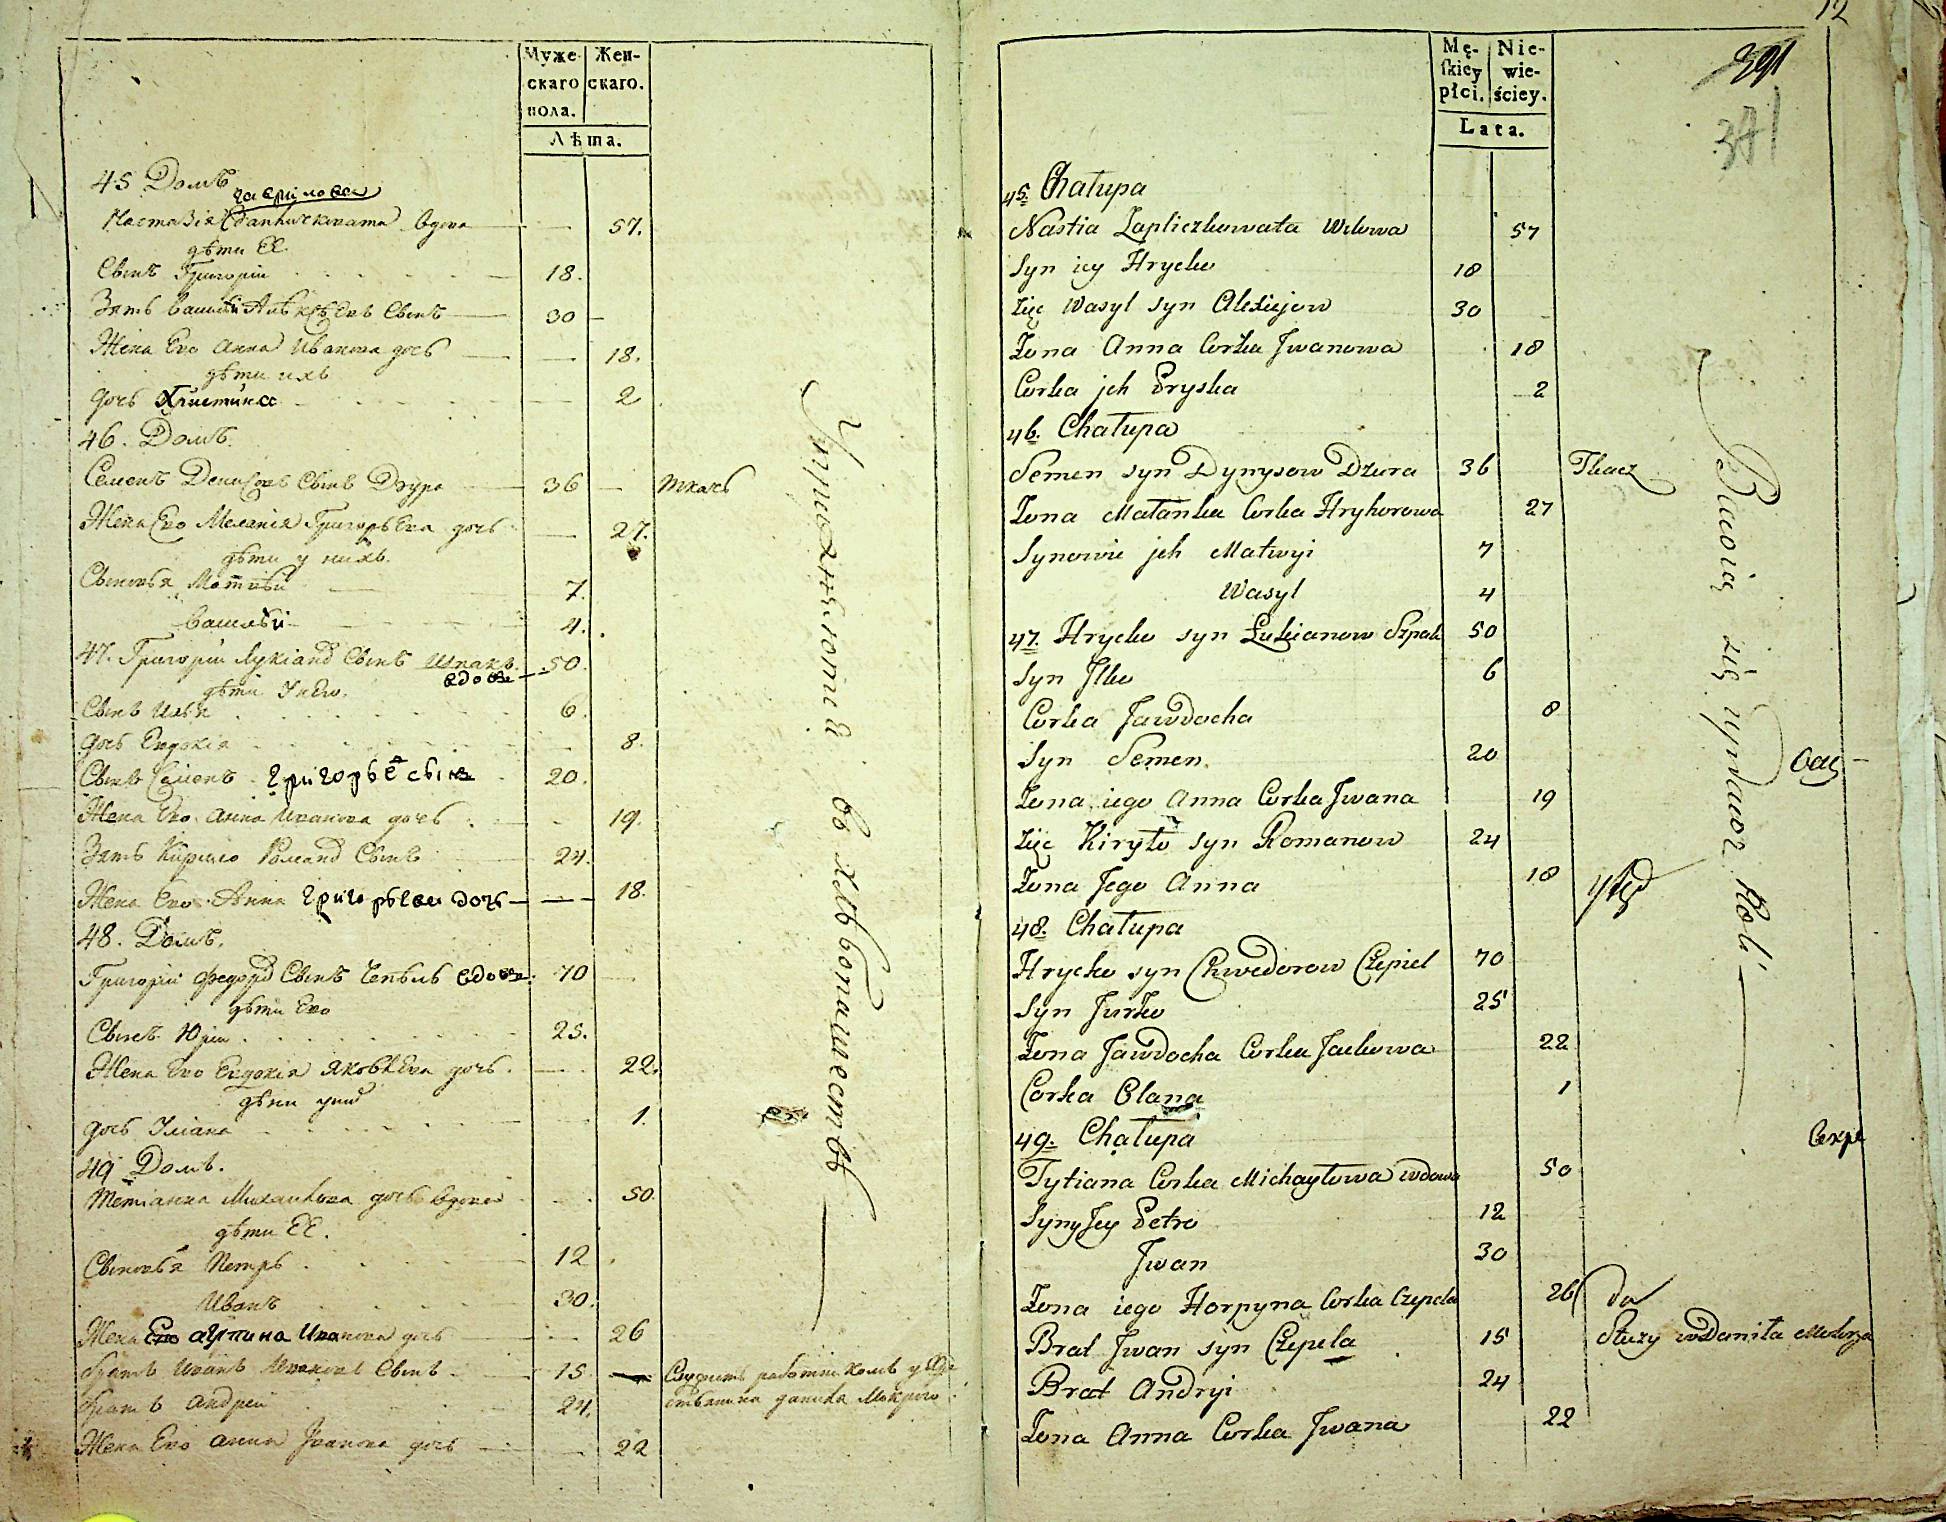 Муже-
скаго
пола.
Жен-
скаго.
Лѣта.
45 Домъ
гаврилова
Настазія вдова 57.
дѣти ЕЕ
Сынъ Григорій 18.
Зять Василій Алексѣевъ Сынъ 30
Жена Ево Анна Иванова дочь 18.
дѣти ихъ
дочь Христина 2
46. Домъ.
Семенъ Денисовъ Сынъ Дзура 36 ткачъ
Жена Ево Меланія Григорьева дочь 27.
дѣти у нихъ.
Сыновья Матвѣй 7.
Василѣй 4.
47. Григорій Лукіановъ Сынъ Шпакъ 50.
вдовъ
дѣти У нево.
Сынъ Илья 6.
дочь Евдокія 8.
Сынъ Семенъ Григорьевъ сынъ 20.
Жена Ево Анна Иванова дочь 19.
Зять Кирило Романовъ Сынъ 24.
Жена Ево Анна григорьева дочь 18.
48. Домъ.
Григорій Федоровъ Сынъ Чепѣль вдовъ. 70
дѣти Ево
Сынъ Юрій 25.
Жена Ево Евдокія Яковлева дочь. 22.
дѣти у нихъ
дочь Уліана 1.
49 Домъ.
Тетіанна Михайлова дочь вдова 50.
дѣти ЕЕ.
Сыновья Петръ 12
Иванъ 30.
Жена Ево Иванова дочь 26
братъ Иванъ Ивановъ Сынъ 15. Служитъ работникомъ у
братъ Андрей 24. данила Мокрого
Жена Ево Анна Иванова дочь 22
Упражняются въ хлѣбопашествѣ
12
391
371
Mę-
skiey
płci.
Nie-
wie-
ściey.
Lata.
45. Chałupa
Nastia Zapliczkowata Wdowa 57
Syn iey Hrycko 18
Zięć Wasyl syn Alexiejow 30
Żona Anna Corka Jwanowa 18
Corka jch Pryska 2
46. Chałupa
Semen syn Dynysow Dzura 36 Tkacz
Żona Małanka Corka Hryhorowa 27
Synowie jch Matwyi 7
Wasyl 4
47. Hrycko syn Łukianow Szpak 50
Syn Jlko 6
Corka Jawdocha 8
Syn Semen 20
Żona iego Anna Corka Jwana 19
Zięć Kiryło syn Romanow 24
Żona Jego Anna 18
48. Chałupa
Hrycko syn Chwedorow Czepiel 70
Syn Jurko 25
Żona Jawdocha Corka Jackowa 22
Corka Olana 1
49. Chałupa
Tytiana Corka Michayłowa wdowa 50
Syny Jey Petro 12
Jwan 30
Żona iego Horpyna Corka Czepela 26
Brat Jwan syn Czepela 15 Służy u Daniła Mokrza
Brat Andryi 24
Żona Anna Corka Jwana 22
Bawią się uprawą Roli